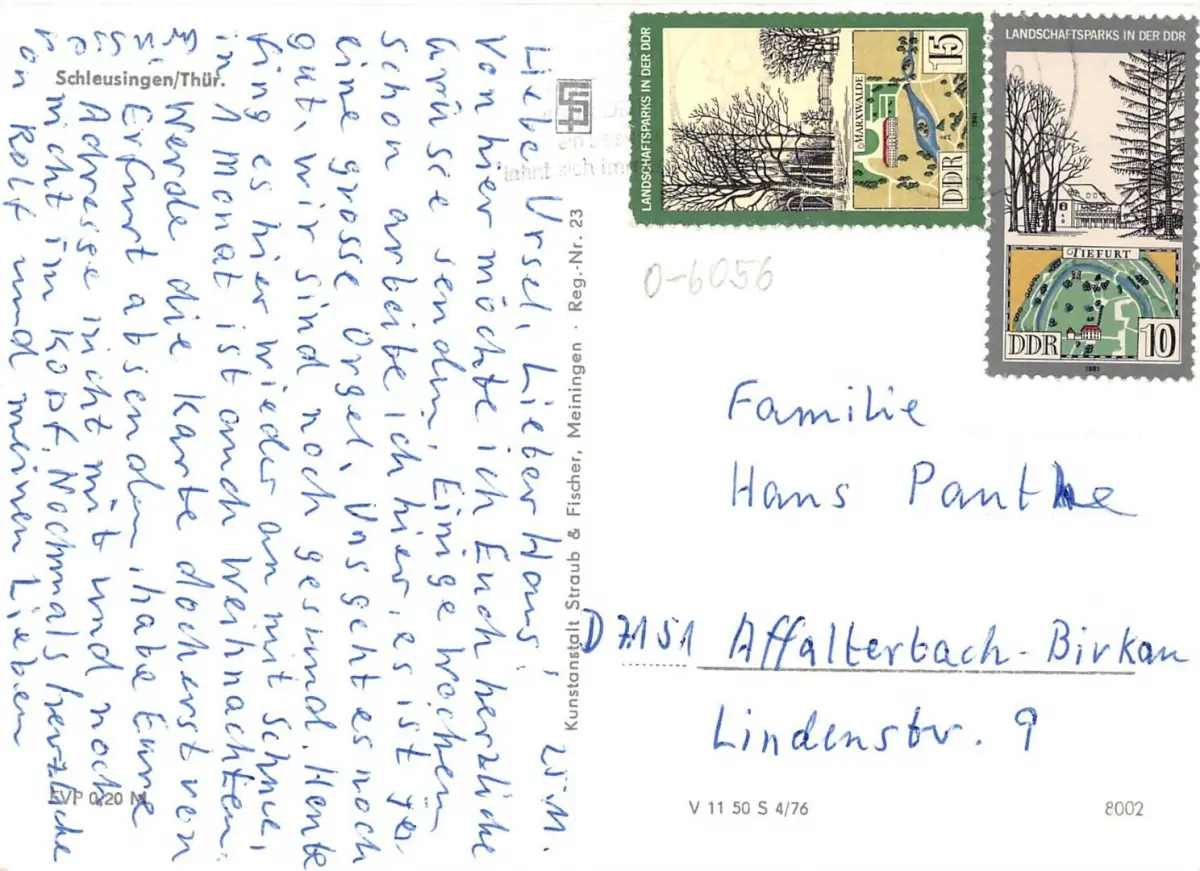 Schleusingen/Thür.
25.11.
Liebe Ursel, Lieber Hans!
Von hier möchte ich Euch herzliche
Grüße senden, Einige Wochen
schon arbeite ich hier, es ist
eine grosse Orgel, Uns geht es noch
gut, wir sind noch gesund. Heute
fing es hier wieder an mit Schnee,
in 1 Monat ist auch Weihnachten.
Werde die Karte doch erst von
Erfurt absenden, habe Eure
Adresse nicht mit und noch
nicht im Kopf. Nochmals herzliche
von Rolf und meinen Lieben
EVP 0,20 M
Kunstanstalt Straub & Fischer, Meiningen · Reg.-Nr. 23
lohnt sich
LANDSCHAFTSPARKS IN DER DDR
MARXWALDE
15
DDR
1981
LANDSCHAFTSPARKS IN DER DDR
TIEFURT
DDR
10
1981
0-6056
Familie
Hans Panthe
D 7151 Affalterbach-Birkau
Lindenstr. 9
V 11 50 S 4/76
8002